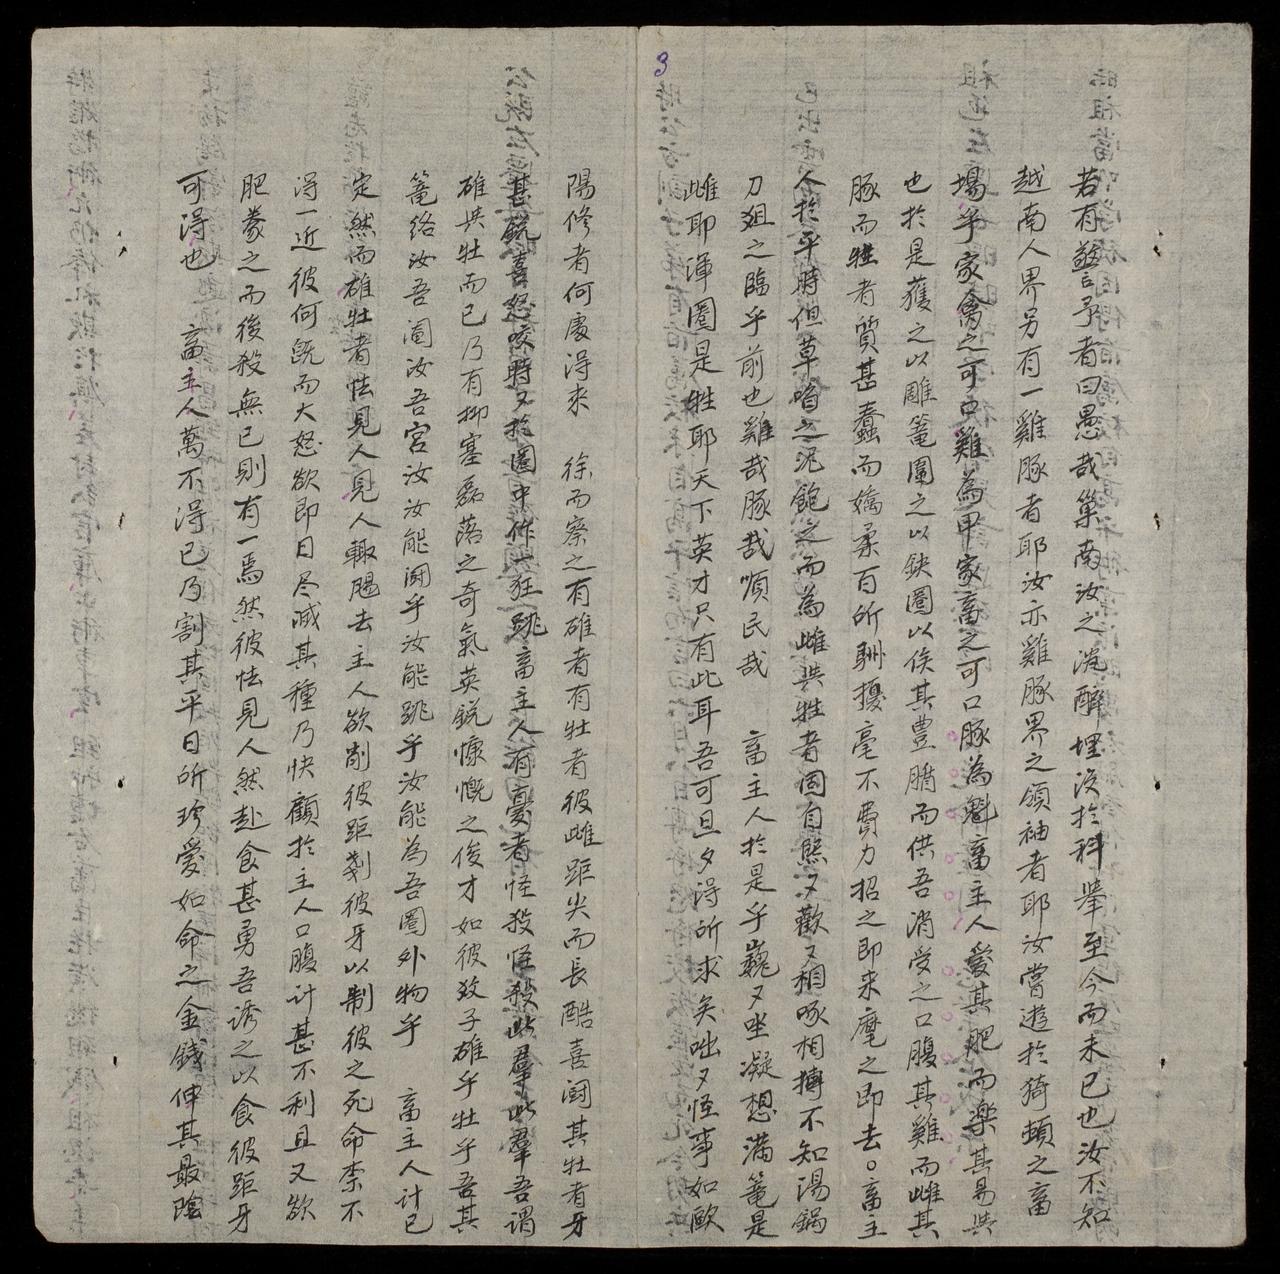 3
若有謷予者曰愚哉巢南汝之沌醉埋沒於科舉至今而未已也汝不知
越南人界另有一雞豚者耶汝亦雞豚界之領袖者耶汝嘗遊於猗頓之畜
場乎家禽之可口雞為甲家畜之可口豚為魁畜主人愛其肥而樂其易共
也於是獲之以雕篭圍之以鉄圈以俟其豊腯而供吾消受之口腹其雞而雌其
豚而牲者質甚蠢而嬌柔百所馴擾毫不費力招之即来麾之即去。畜主
人於平時但草啗之泥飽之而為雌共牲者固自熙々歡々相啄相摶不知湯鍋
刀俎之臨乎前也雞哉豚哉順民哉 畜主人於是乎巍々坐凝想滿篭是
雌耶渾圈是牲耶天下英才只有此耳吾可旦夕得所求矣咄々怪事如歐
陽修者何處得来 徐而察之有雄者有牡者彼雌距尖而長酷喜鬪其牡者牙
甚銳喜怒咬時又於圈中作一狂跳畜主人有憂者怪殺怪殺此羣此羣吾謂
雄共牡而已乃有抑塞磊落之奇氣英銳慷慨之俊才如彼攷子雄乎牡乎吾其
篭絡汝吾圍汝吾宮汝汝能鬪乎汝能跳乎汝能為吾圈外物乎 畜主人計已
定然而雄牡者怯見人見人輙腸去主人欲削彼距剗彼牙以制彼之死命柰不
得一近彼何旣而大怒欲即日尽滅其種乃快顧於主人口腹计甚不利且又欲
肥豢之而後殺無已則有一焉然彼怯見人然赴食甚勇吾誘之以食彼距牙
可得也 畜主人萬不得已乃割其平日所珍愛如命之金錢伸其最陰